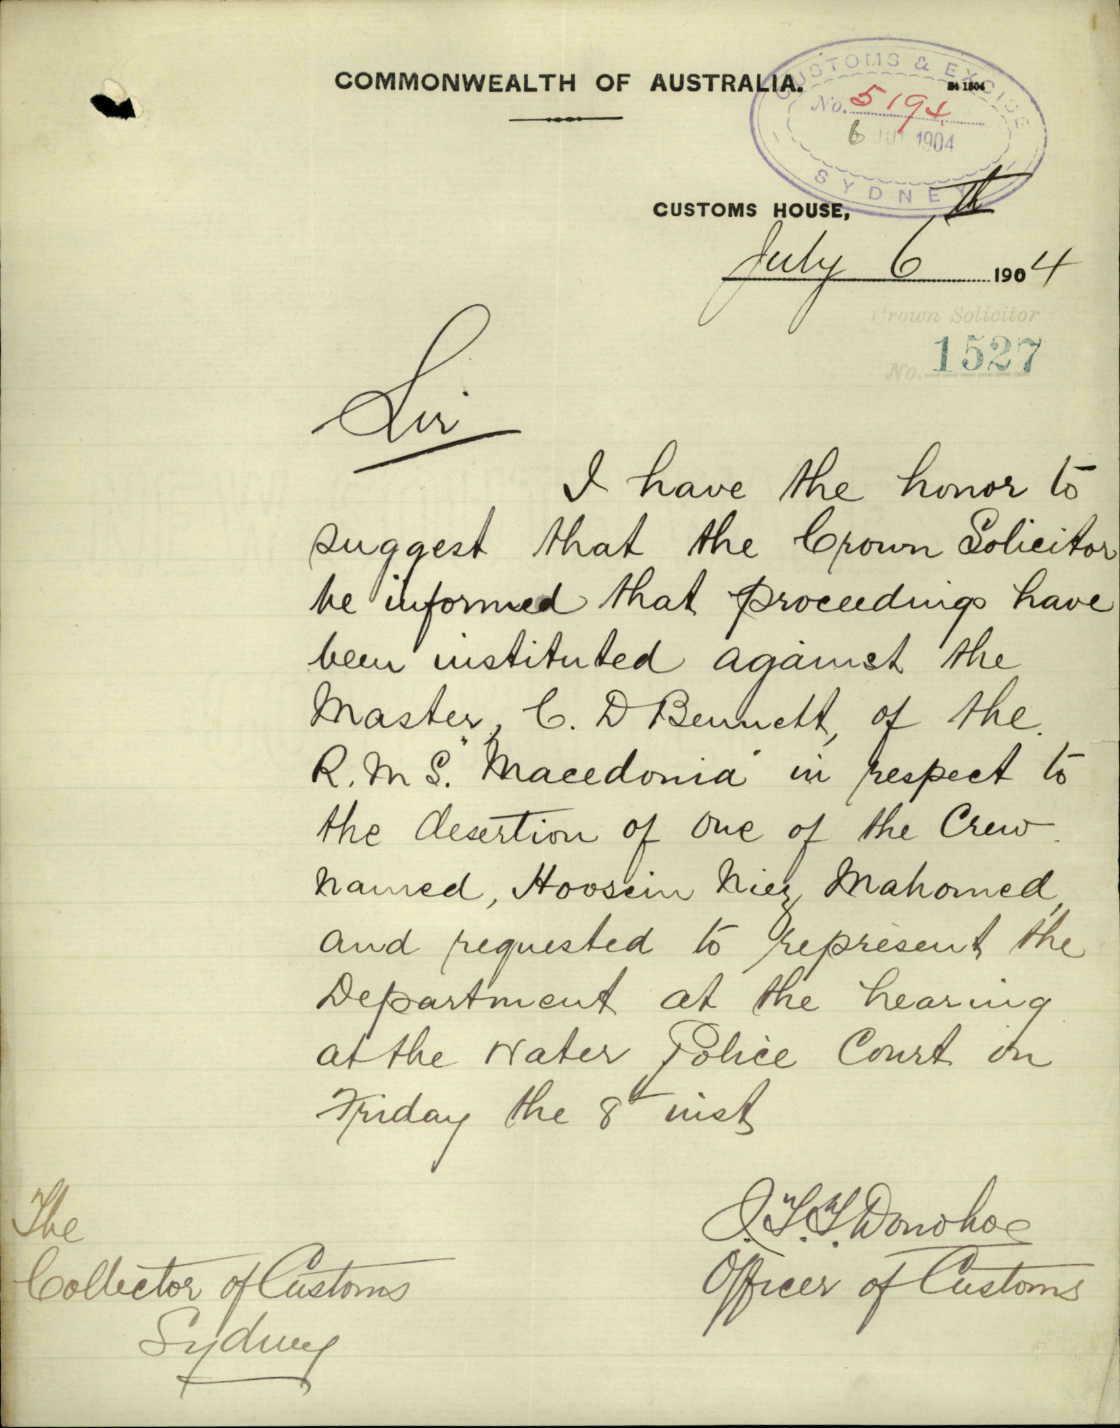 COMMONWEALTH OF AUSTRALIA.
CUSTOMS & EXCISE
No. 5194
6 JUL 1904
SYDNEY
CUSTOMS HOUSE,
July 6th 1904
Crown Solicitor
No. 1527
Sir
I have the honor to
suggest that the Crown Solicitor
be informed that proceedings have
been instituted against the
Master, C. D Bennett, of the
R. M S. "Macedonia" in respect to
the desertion of one of the Crew
named, Hoosein Niez Mahomed,
and requested to represent the
Department at the hearing
at the Water Police Court on
Friday the 8th inst
Donohoe
Officer of Customs
The
Collector of Customs
Sydney